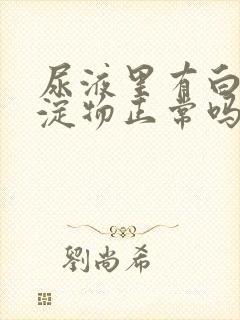 尿液里有白
淀物正常吗
劉尚希